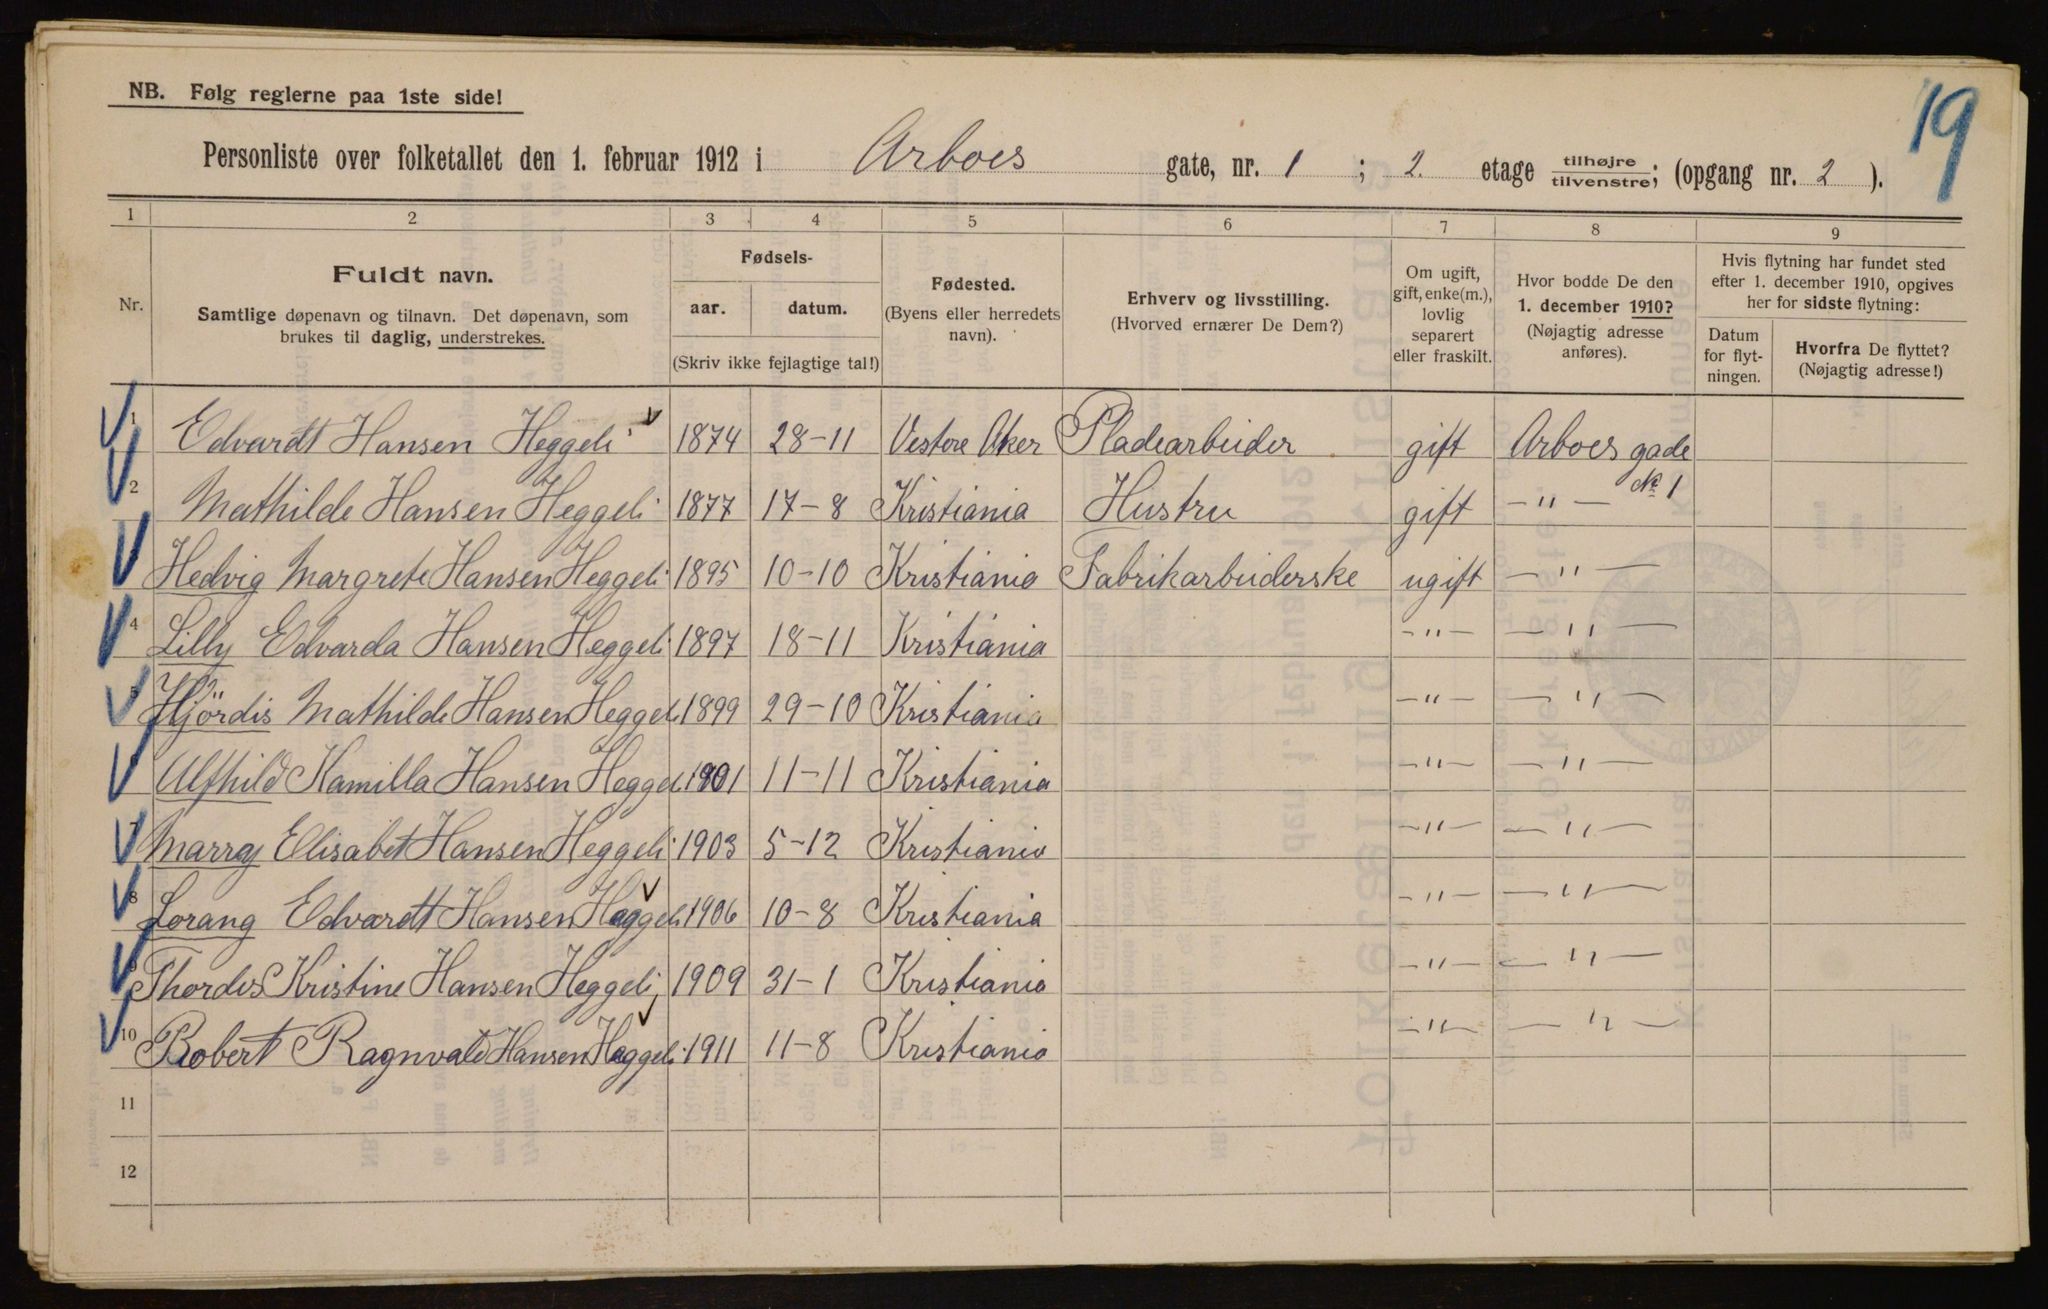 19
NB. Følg reglerne paa 1ste side!
Personliste over folketallet den 1. februar 1912 i Arboes gate, nr. 1 ; 2. etage tilhøjre tilvenstre; (opgang nr. 2 ).
1 2 3 4 5 6 7 8 9
Nr.
Fuldt navn.
Samtlige døpenavn og tilnavn. Det døpenavn, som
brukes til daglig, understrekes.
Fødsels-
aar. datum.
(Skriv ikke fejlagtige tal!)
Fødested.
(Byens eller herredets
navn).
Erhverv og livsstilling.
(Hvorved ernærer De Dem?)
Om ugift,
gift, enke(m.),
lovlig
separert
eller fraskilt.
Hvor bodde De den
1. december 1910?
(Nøjagtig adresse
anføres).
Hvis flytning har fundet sted
efter 1. december 1910, opgives
her for sidste flytning:
Datum
for flyt-
ningen.
Hvorfra De flyttet?
(Nøjagtig adresse!)
1 Edvardt Hansen Heggeli 1874 28-11 Vestre Aker Pladearbeider gift Arboes gade
No 1
2 Mathilde Hansen Heggeli 1877 17-8 Kristiania Hustru gift -"-
Hedvig Margrete Hansen Heggeli 1895 10-10 Kristiania Fabrikarbeiderske ugift -"-
4 Lilly Edvarda Hansen Heggeli 1897 18-11 Kristiania -"- -"-
Hjördis Mathilde Hansen Heggeli 1899 29-10 Kristiania -"- -"-
Ulfhild Kamilla Hansen Heggeli 1901 11-11 Kristiania -"- -"-
7 Marray Elisabet Hansen Heggeli 1903 5-12 Kristiania -"- -"-
8 Lorang Edvardt Hansen Heggeli 1906 10-8 Kristiania -"- -"-
9 Thordis Kristine Hansen Heggeli 1909 31-1 Kristiania -"- -"-
10 Robert Ragnvald Hansen Heggeli 1911 11-8 Kristiania -"- -"-
11
12